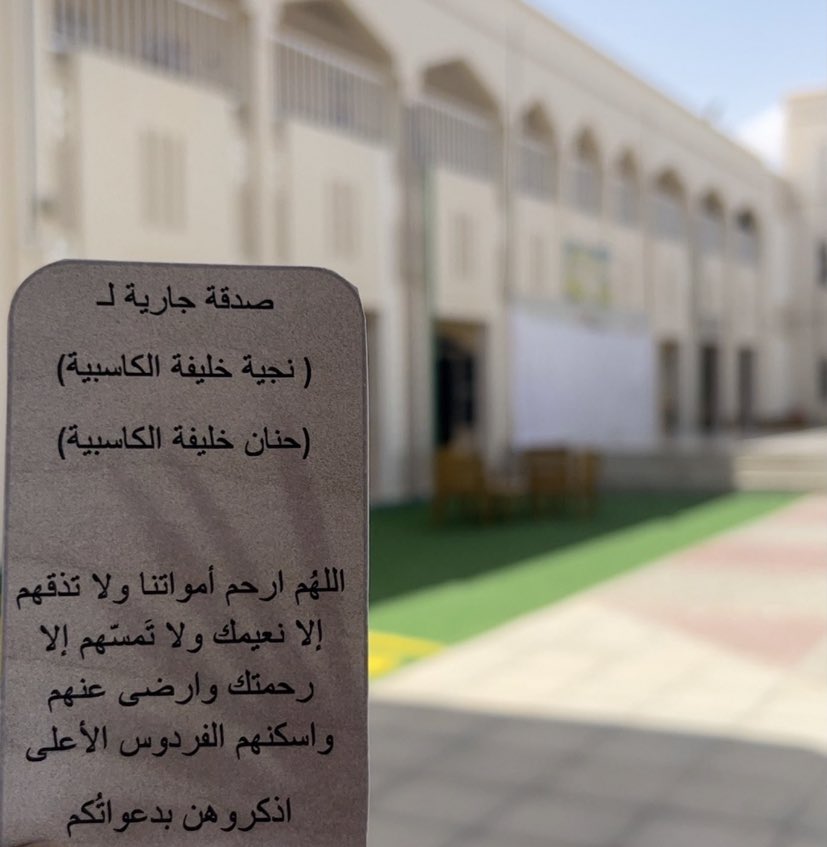 صدقة جارية لـ
( نجية خليفة الكاسبية)
(حنان خليفة الكاسبية)
اللهُم ارحم أمواتنا ولا تذقهم
إلا نعيمك ولا تَمسّهم إلا
رحمتك وارضى عنهم
واسكنهم الفردوس الأعلى
اذكروهن بدعواتُكم